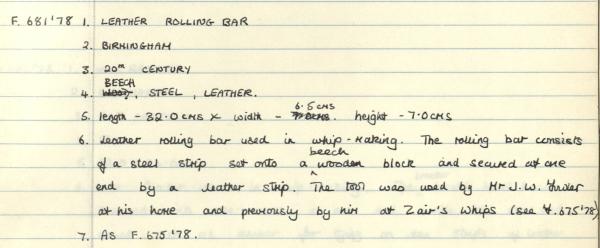 F. 681'78 1. LEATHER ROLLING BAR
2. BIRMINGHAM
3. 20TH CENTURY
BEECH
4. WOOD, STEEL, LEATHER.
6.5 CMS
5. length - 32.0 CMS x width - 7.0CMS. height - 7.0CMS
6. leather rolling bar used in whip-making. The rolling bar consists
beech
of a steel strip set onto a wooden block and secured at one
end by a leather strip. The tool was used by Mr J.W.
at his home and previously by him at Zair's Whips (see F.675'78)
7. As F.675'78.